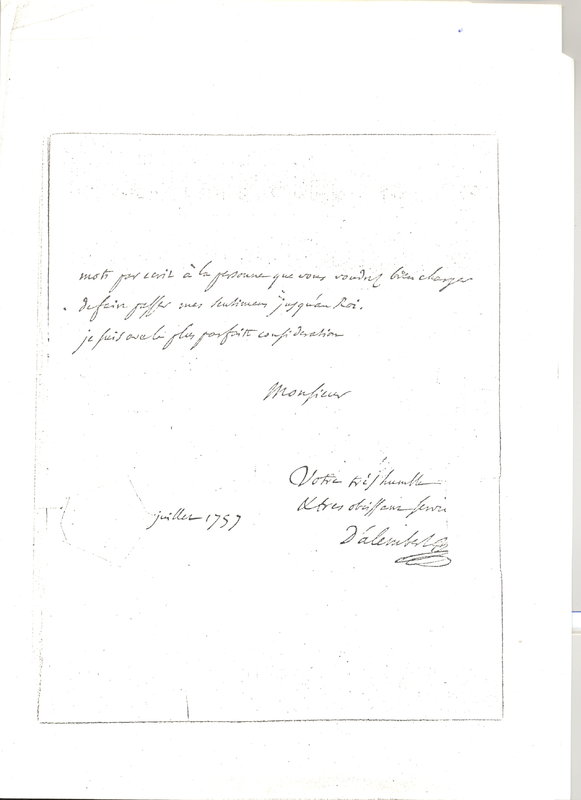 mots par ecrit à la personne que vous voudrez bien charger
de faire passer mes sentimens jusqu'au Roi.
je suis avec la plus parfaite consideration
Monsieur
Votre très humble
& tres obeissant servit
juillet 1757
D'alembert